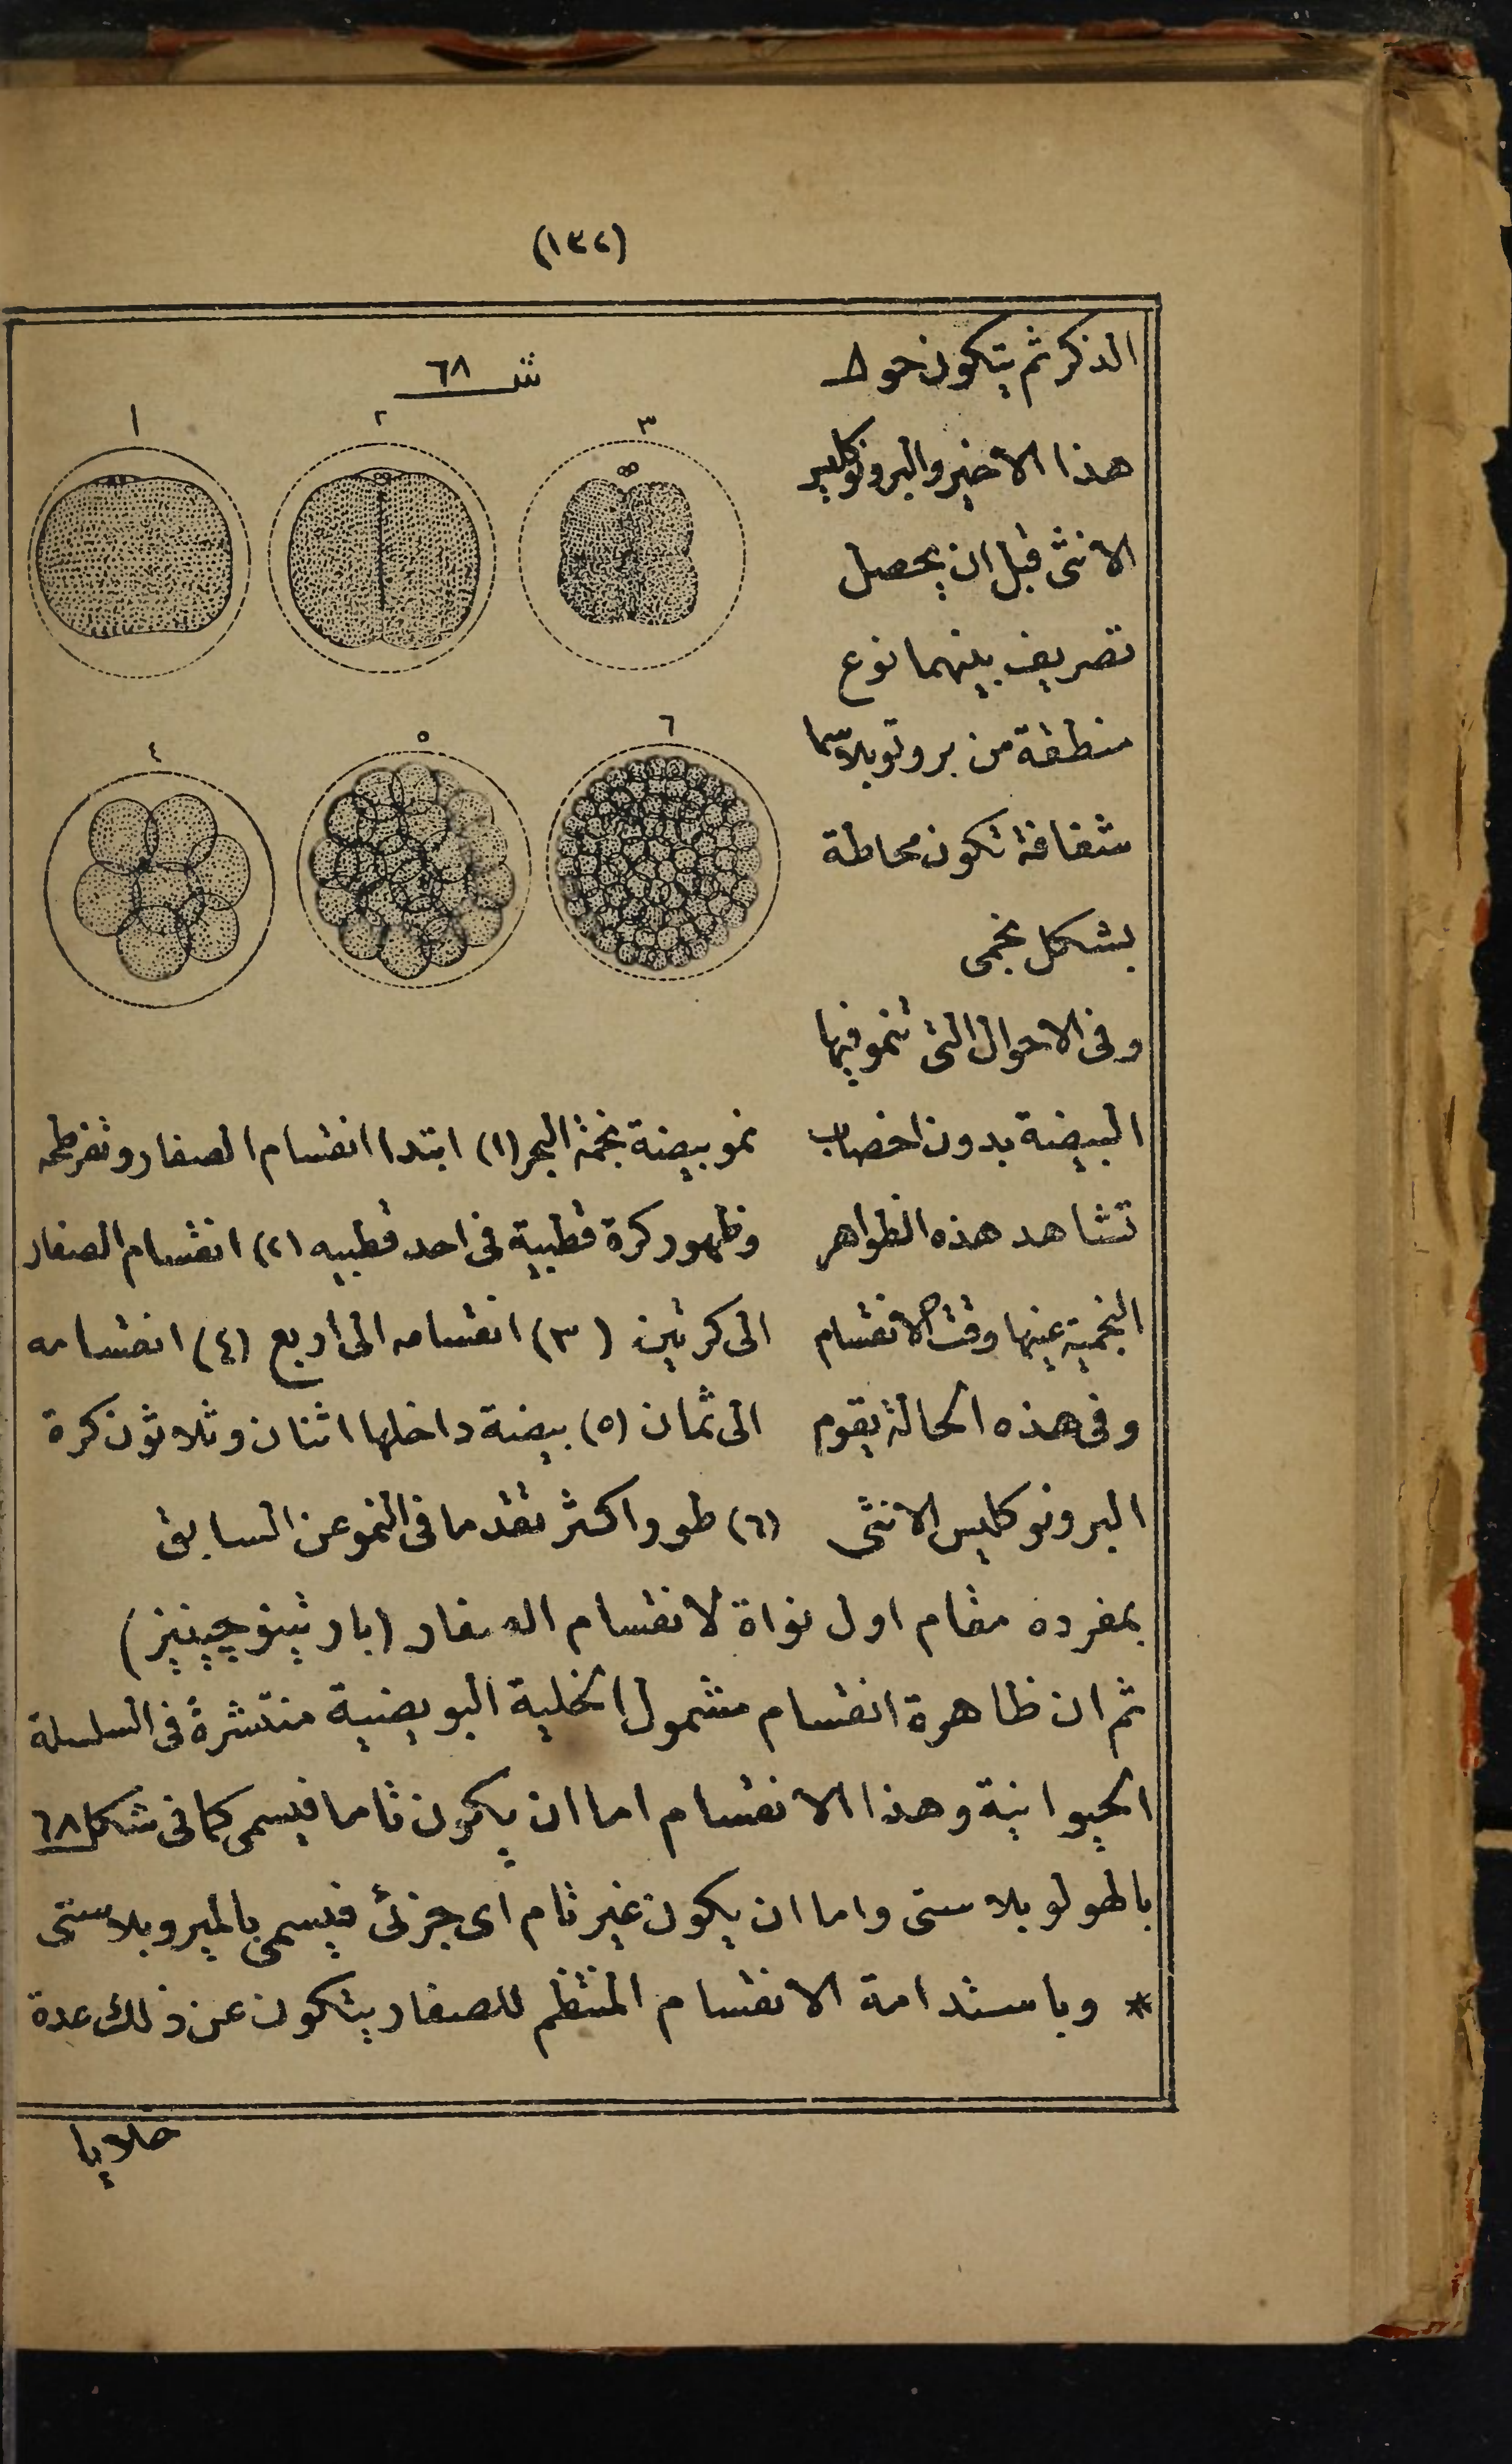 (١٣٢)
الذكر ثم يتكون حول
هذا الاخير والبرونوكليس
الانثى قبل ان يحصل
تصريف بينهما نوع
منطقة من بروتوبلاسما
شفافة تكون محاطة
بشكل نجمى
وفى الاحوال التى تنمو فيها
البيضة بدون اخصاب
تشاهد هذه الظواهر
النجمية عينها وقت الانقسام
وفى هذه الحالة يقوم
البرونوكليس الانثى
شـ ٦٨
٣ ٢ ١
٦ ٥ ٤
نمو بيضة نجمة البحر (١) ابتدا انقسام الصفار وتفرطحه
وظهور كرة قطبية فى احد قطبيه (٢) انقسام الصفار
الى كرتين (٣) انقسامه الى أربع (٤) انقسامه
الى ثمان (٥) بيضة داخلها اثنان وثلاثون كرة
(٦) طور اكثر تقدما فى النمو عن السابق
بمفرده مقام اول نواة لانقسام الصفار (بارثينوچينيز)
ثم ان ظاهرة انقسام مشمول الخلية البويضية منتشرة فى السلسلة
الحيوانية وهذا الانقسام اما ان يكون تاما فيسمى كما فى شكل ٦٨
بالهولوبلاستى واما ان يكون غير تام اى جزئى فيسمى بالميروبلاستى
* وباستدامة الانقسام المنتظم للصفار يتكون عن ذلك عدة
خلايا